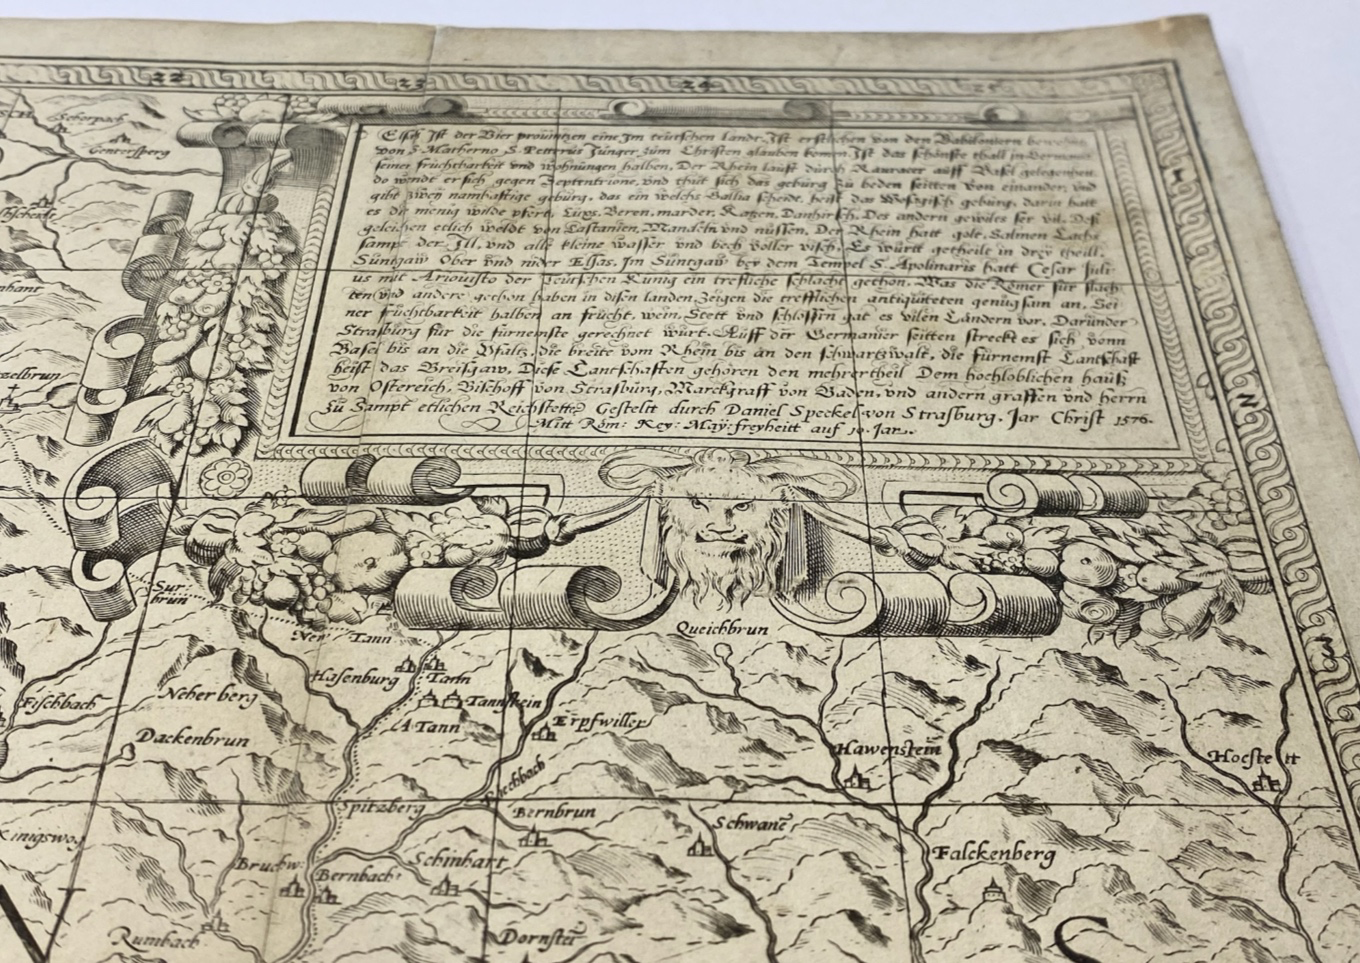 22 23 24 25
Elsas Ist der Vier prouintzen eine Im teutschen lande. Ist erstlichen von den Babiloniern bewohnt
von S. Matherno S. Petterus Junger zum Christen glauben komen. Ist das schönste thall in Germania
seiner früchtbarkeit vnd wohnüngen halben. Der Rhein laüft dürch Rauracer aüff Basel gelegenhen.
do wendt er sich gegen Septentrione, vnd thüt sich das gebürg zü beden seitten von einander, vnd
gibt zwey namhaftige gebürg, das ein welchs Gallia scheide, heist das Wesgisch gebürg, darin hatt
es die menig wilde pfert, Lüxs, Beren, marder, Katzen, Danhirsch, Des andern gewiles ser vil. Dess
geleichen etlich weldt von Castanien, Mandeln vnd nüssen. Der Rhein hatt golt, Salmen Lachs
sampt der Jll, vnd alle kleine wasser vnd bech voller visch. Es württ getheilt in drey theill.
Süntgaw Ober vnd nider Elsas. Jm Süntgaw bey dem Tempel S. Apolinaris hatt Cesar Juli-
us mit Ariouisto der Teutschen Kunig ein trefliche schlacht gethon. Was die Römer für schlach
ten vnd andere gethon haben in disen landen Zeigen die trefflichen antiqüiteten genügsam an. Sei-
ner früchtbarkeit halben an frücht, wein, Stett vnd schlössern gat es vilen Landern vor. Daründer
Strasbürg für die fürnemste gerechnet würt. Aüff der Germanier seitten streckt es sich vonn
Basel bis an die Pfaltz, die breite vom Rhein bis an den schwartzwalt, die fürnemst Lantschaft
heist das Breisgaw. Diese Lantschaften gehören den mehrertheil Dem hochloblichen hauß
von Ostereich, Bischoff von Strasbürg, Marckgraff von Baden, vnd andern graffen vnd herrn
zü Sampt etlichen Reichstette. Gestelit durch Daniel Speckel von Strasburg. Jar Christ 1576.
Mitt Röm: Key: May: freyheitt auf 10. Jar.
Scherpach
Genterssberg
zelbrun
Sur:
brun
New Tann
Queichbrun
Hasenburg
Tann
Fischbach
Neherberg
Tannstein
A Tann
Erpfwiller
Dackenbrun
Hawenstein
Hoestett
Spitzberg
Bernbrun
Schwane
Schinhart
Falckenberg
Bruckw:
Bernbach
Rumbach
Dornste
N
S